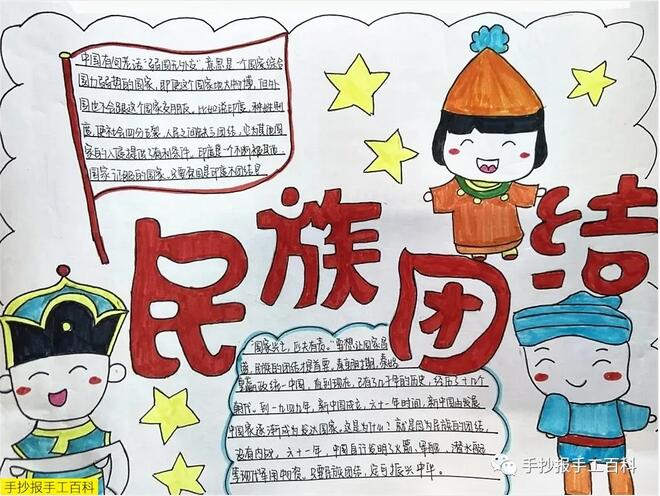 中国有句老话"弱国无外交",意思是一个国家综合
国力弱势的国家,即使这个国家地大物博,但外
国也不会跟这个国家交朋友。比如说印度,种姓制
度,使社会四分五裂,人民之间缺乏团结,也为其他国
家的入侵提供了有利条件。印度是一个不断被其他
国家征服的国家,主要原因是印度不团结
民族团结
"国家兴亡,匹夫有责。"要想让国家昌
盛,民族的团结才是首要。秦
皇嬴政统一中国,直到现在,已有了几千年的历史,经历了十几个
朝代。到一九四九年,新中国成立,六十一年时间,新中国由发展
中国家逐渐成为发达国家。这是为什么?就是因为民族的团结,
没有内战。六十一年,中国自行发明了火箭、军舰、潜水艇
等现代军用物资。只要民族团结,定可振兴中华。
手抄报手工百科
手抄报手工百科